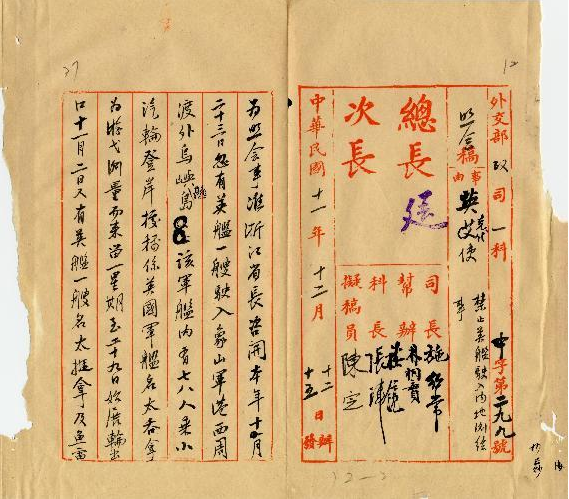 外交部 政司 一科
中字第二九九號
照會稿
事由
英艾使
禁止英艦駛入內地測繪
事
總長
次長
司長
幫辦
科長
擬稿員 陳定
施紹常
中華民國 十一年 十二月 十二日辦
十五 發
為照會事准浙江省長咨開本年十月
二十三日忽有英艦一艘駛入象山軍港西周
渡外烏嶼島 該軍艦內有七八人乘小
汽輪登岸 係英國軍艦名太
為游弋測量而來留一星期至二十九日始展輪出
口十一月二日又有英艦一艘名太 拿及魚雷